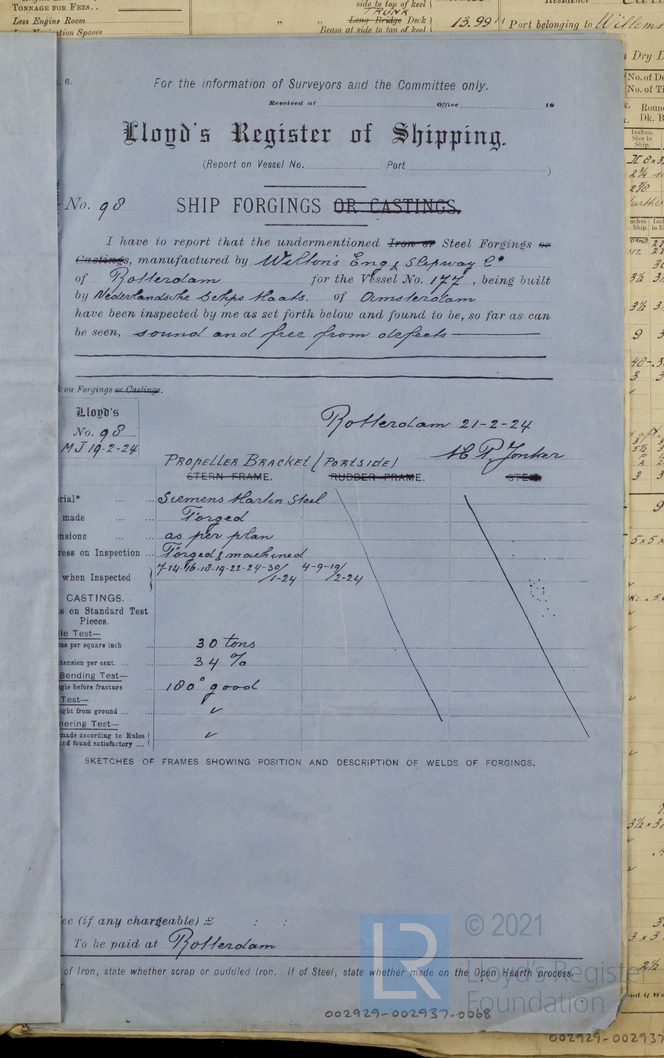 TONNAGE FOR FEES..
Less Engine Room
side to top of keel
TRUNK
Long Bridge Deck
Beam at side to top of keel
13.99
Port belonging to Willems
6.
For the information of Surveyors and the Committee only.
Received at Office 19
Lloyd's Register of Shipping.
(Report on Vessel No. Port )
No. 98 SHIP FORGINGS OR CASTINGS.
I have to report that the undermentioned Iron or Steel Forgings or
Castings, manufactured by Wilton's Eng & Slipway Co
of Rotterdam for the Vessel No. 177, being built
by Nederlandsche Scheps Maats. of Amsterdam
have been inspected by me as set forth below and found to be, so far as can
be seen, sound and free from defects
on Forgings or Castings.
Lloyd's
No. 98
MJ 19-2-24
Rotterdam 21-2-24
M P. Jonker
PROPELLER BRACKET (PORTSIDE)
STERN FRAME. RUDDER FRAME. STEM
rial* ... ... Siemens Martin Steel
made ... Forged
nsions ... as per plan
ress on Inspection ... Forged & machined
when Inspected 7-14-16-18-19-22-24-30/1-24 4-9-19/2-24
CASTINGS.
s on Standard Test
Pieces.
le Test—
ns per square inch ... 30 tons
tension per cent. ... ... 34 %
Bending Test—
gle before fracture ... 180° good
Test—
ght from ground ... ✓
mering Test—
made according to Rules
nd found satisfactory ... ✓
SKETCHES OF FRAMES SHOWING POSITION AND DESCRIPTION OF WELDS OF FORGINGS.
ee (if any chargeable) £ : :
To be paid at Rotterdam
of Iron, state whether scrap or puddled Iron. If of Steel, state whether made on the Open Hearth process.
LR
© 2021
Lloyd's Register
Foundation
002929-002937-0068
002929-002937